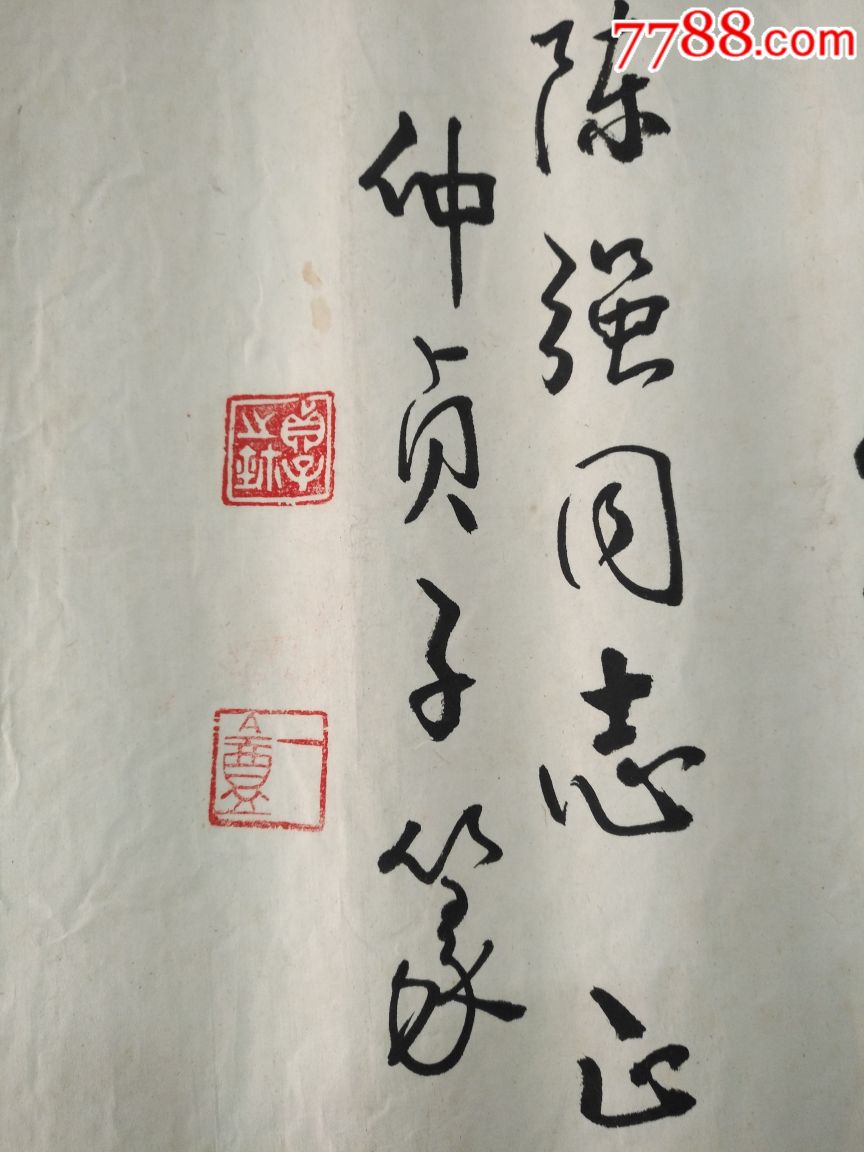 7788.com
陈强同志 正
仲贞子篆